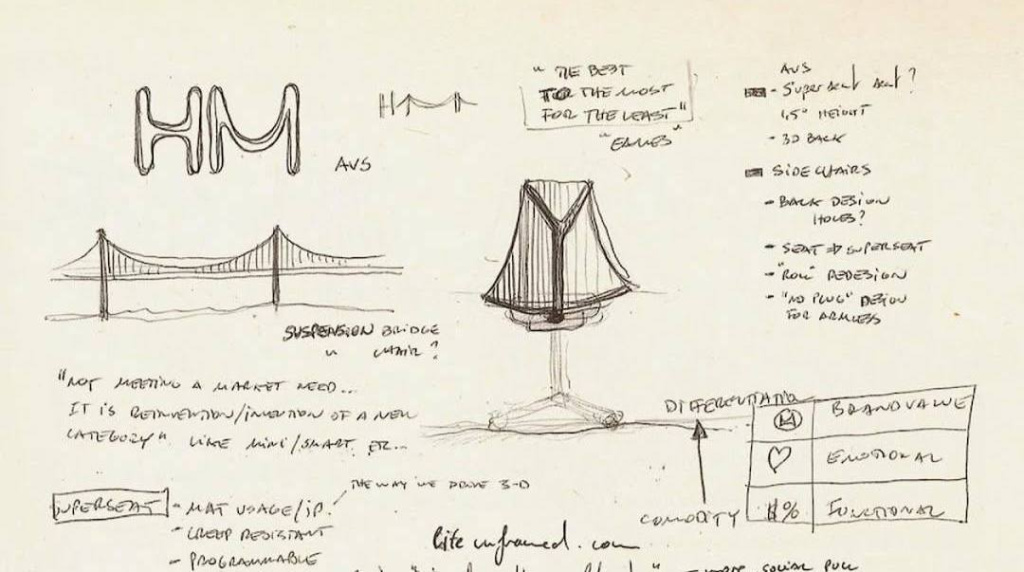 HM
AVS
HM
"THE BEST
TO THE MOST
FOR THE LEAST"
"EAMES"
AVS
- SUPER SEAT
1,5" HEIGHT
- 3D BACK
SIDE CHAIRS
- BACK DESIGN
HOLES?
- SEAT ⇒ SUPERSEAT
- REDESIGN
- "NO PLUG" DESIGN
FOR ARMLESS
SUSPENSION BRIDGE
CHAIR?
"NOT MEETING A MARKET NEED...
IT IS REINVENTION/INVENTION OF A NEW
CATEGORY" LIKE MINI/SMART, ETC...
DIFFERENTIATION
BRAND VALUE
EMOTIONAL
$% FUNCTIONAL
COMODITY
SUPERSEAT
- MAT USAGE/IP.
THE WAY WE DRIVE 3-D
- CREEP RESISTANT
- PROGRAMMABLE
SOCIAL PULL